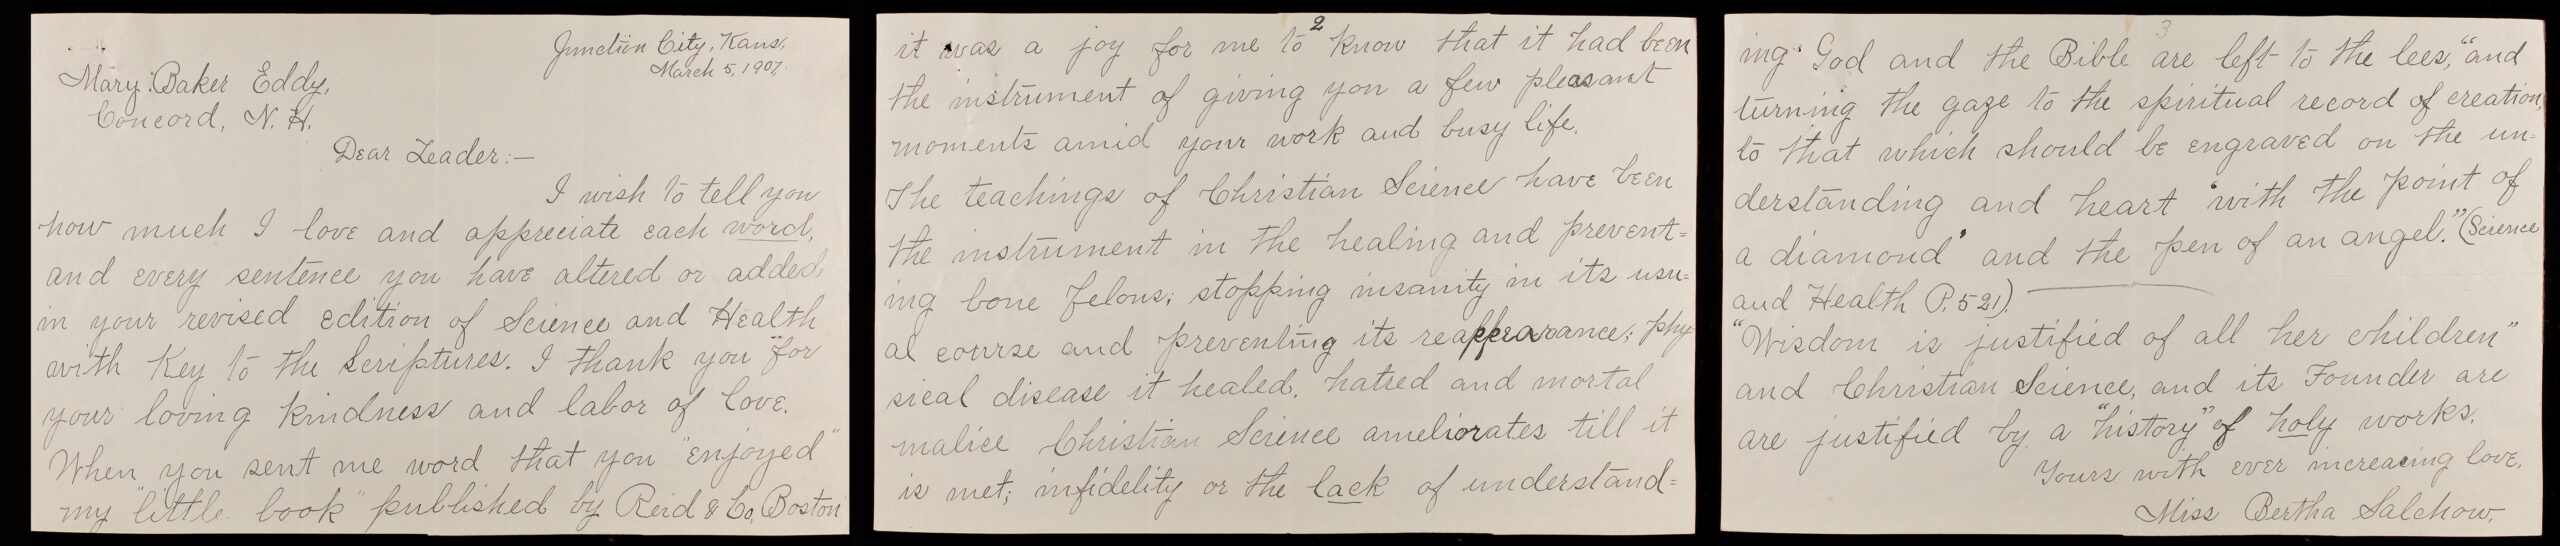 Junction City, Kans,
March 5, 1907.
Mary Baker Eddy,
Concord, N. H.
Dear Leader:—
I wish to tell you
how much I love and appreciate each word,
and every sentence you have altered or added,
in your revised edition of Science and Health
with Key to the Scriptures. I thank you "for
your loving kindness and labor of love.
When you sent me word that you "enjoyed"
my "little book" published by Reid & Co, Boston
2
it was a joy for me to know that it had been
the instrument of giving you a few pleasant
moments amid your work and busy life.
The teachings of Christian Science have been
the instrument in the healing and prevent=
ing bone felons; stopping insanity in its usu=
al course and preventing its reappearance; phy-
sical disease it healed, hatred and mortal
malice Christian Science ameliorates till it
is met; infidelity or the lack of understand=
3
ing God and the Bible are left to the lees, "and
turning the gaze to the spiritual record of creation,
to that which should be engraved on the un=
derstanding and heart 'with the point of
a diamond' and the pen of an angel." (Science
and Health P. 521).
"Wisdom is justified of all her children"
and Christian Science, and its Founder are
are justified by a "history" of holy works.
Yours with ever increasing love,
Miss Bertha Salchow.